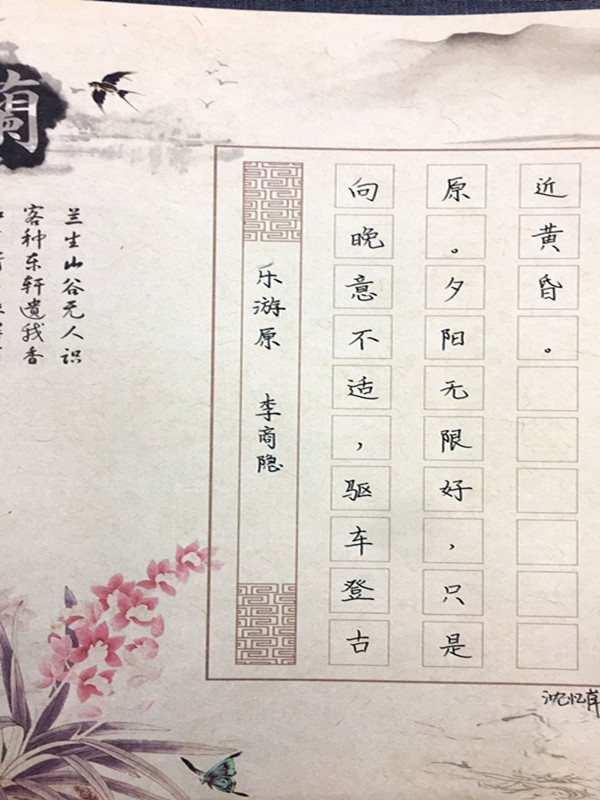 兰生山谷无人识
客种东轩遗我香
乐游原 李商隐
向晚意不适，驱车登古
原。夕阳无限好，只是
近黄昏。